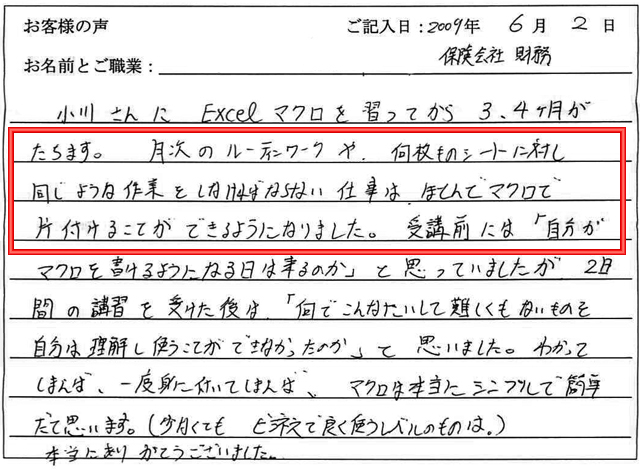 お客様の声 ご記入日：2009年 6月 2日
お名前とご職業： 保険会社 財務
小川さんに Excelマクロを習ってから 3、4ヶ月が
たちます。 月次のルーティンワークや、何枚ものシートに対し
同じような作業をしなければならない仕事は、ほとんどマクロで
片付けることができるようになりました。 受講前には「自分が
マクロを書けるようになる日は来るのか」と思っていましたが 2日
間の講習を受けた後は、「何でこんなたいして難しくもないものを
自分は理解し使うことができなかったのか」と 思いました。わかって
しまえば、一度身に付いてしまえば、 マクロは本当にシンプルで簡単
だと思います。(少なくても ビジネスで良く使うレベルのものは。)
本当にありがとうございました。